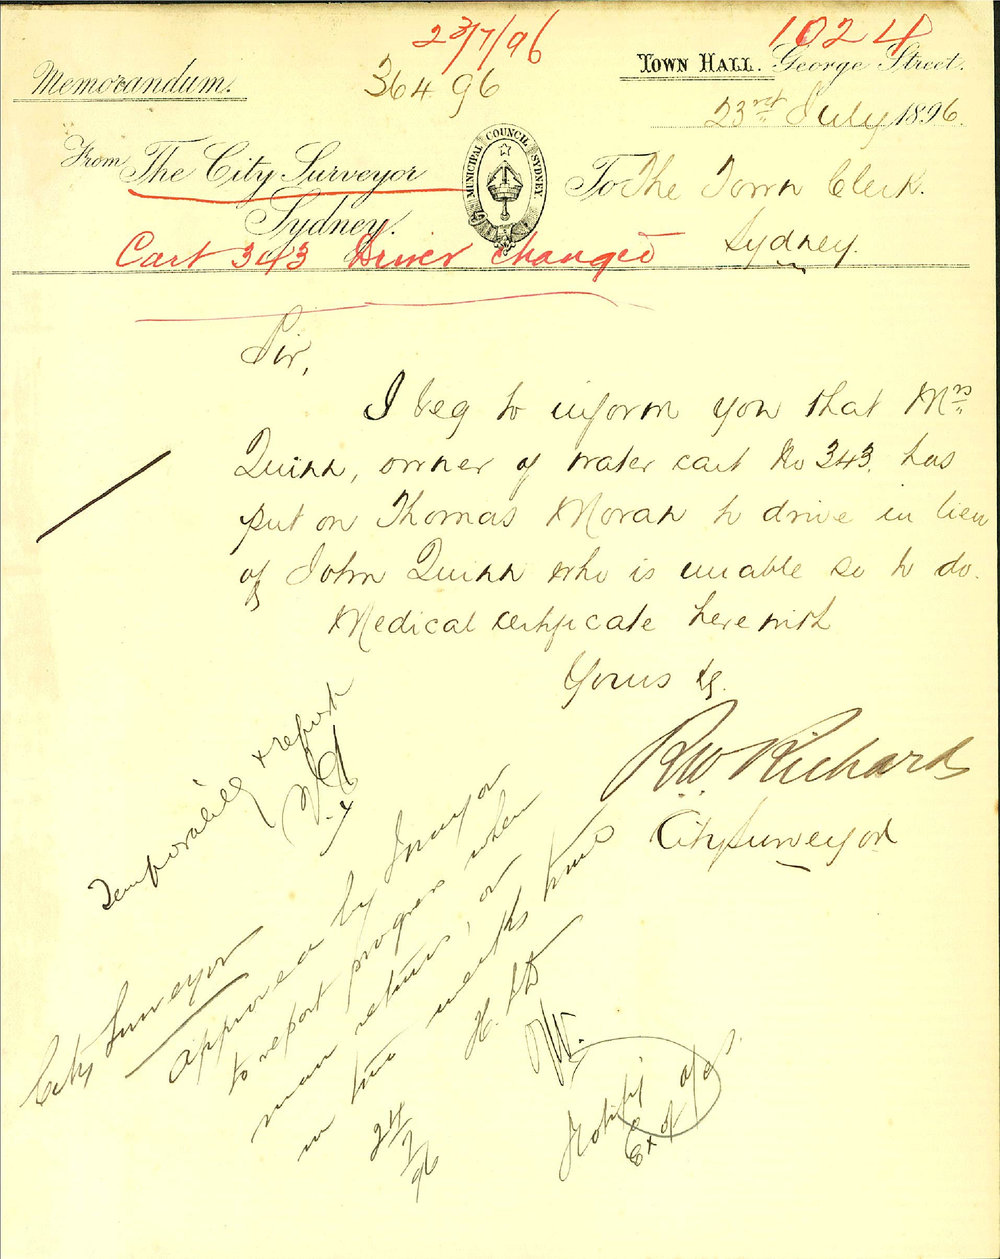 23/7/96
1024
364 96
Memorandum.
Town Hall. George Street.
23rd July 1896.
From The City Surveyor
Sydney.
MUNICIPAL COUNCIL SYDNEY
To The Town Clerk.
Sydney.
Cart 343 Driver changed
Sir,
I beg to inform you that Mrs
Quinn, owner of water cart No 343. has
put on Thomas Moran to drive in lieu
of John Quinn who is unable so to do.
Medical certificate herewith
Yours &c.
R.W. Richards
City Surveyor
Temporarily & report
City Surveyor
Approved by Mayor
to report progress when
man returns, or
in two months time
24/7/96
Notify
Ex of a/cs.